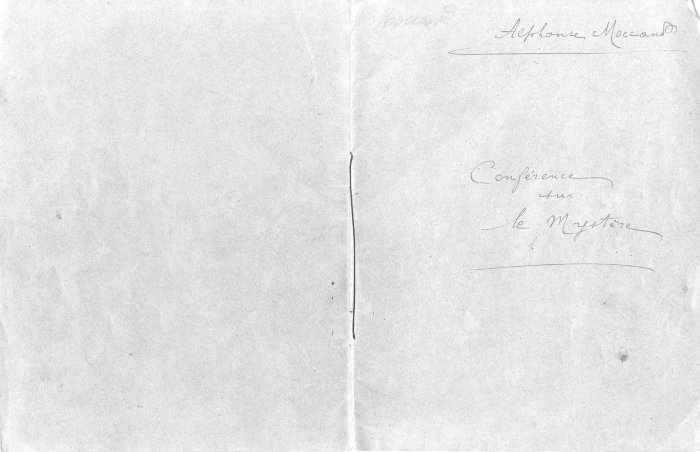 Alphonse Moccand
Conférence
sur
le Mystère